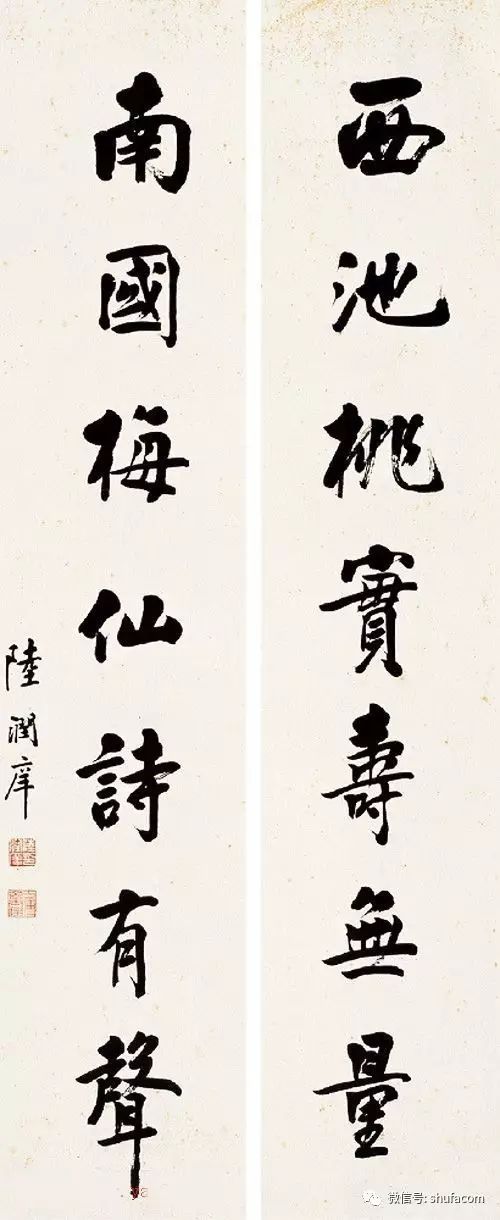 西池桃實壽無量
南國梅仙詩有聲
陸潤庠
微信号: shufacom